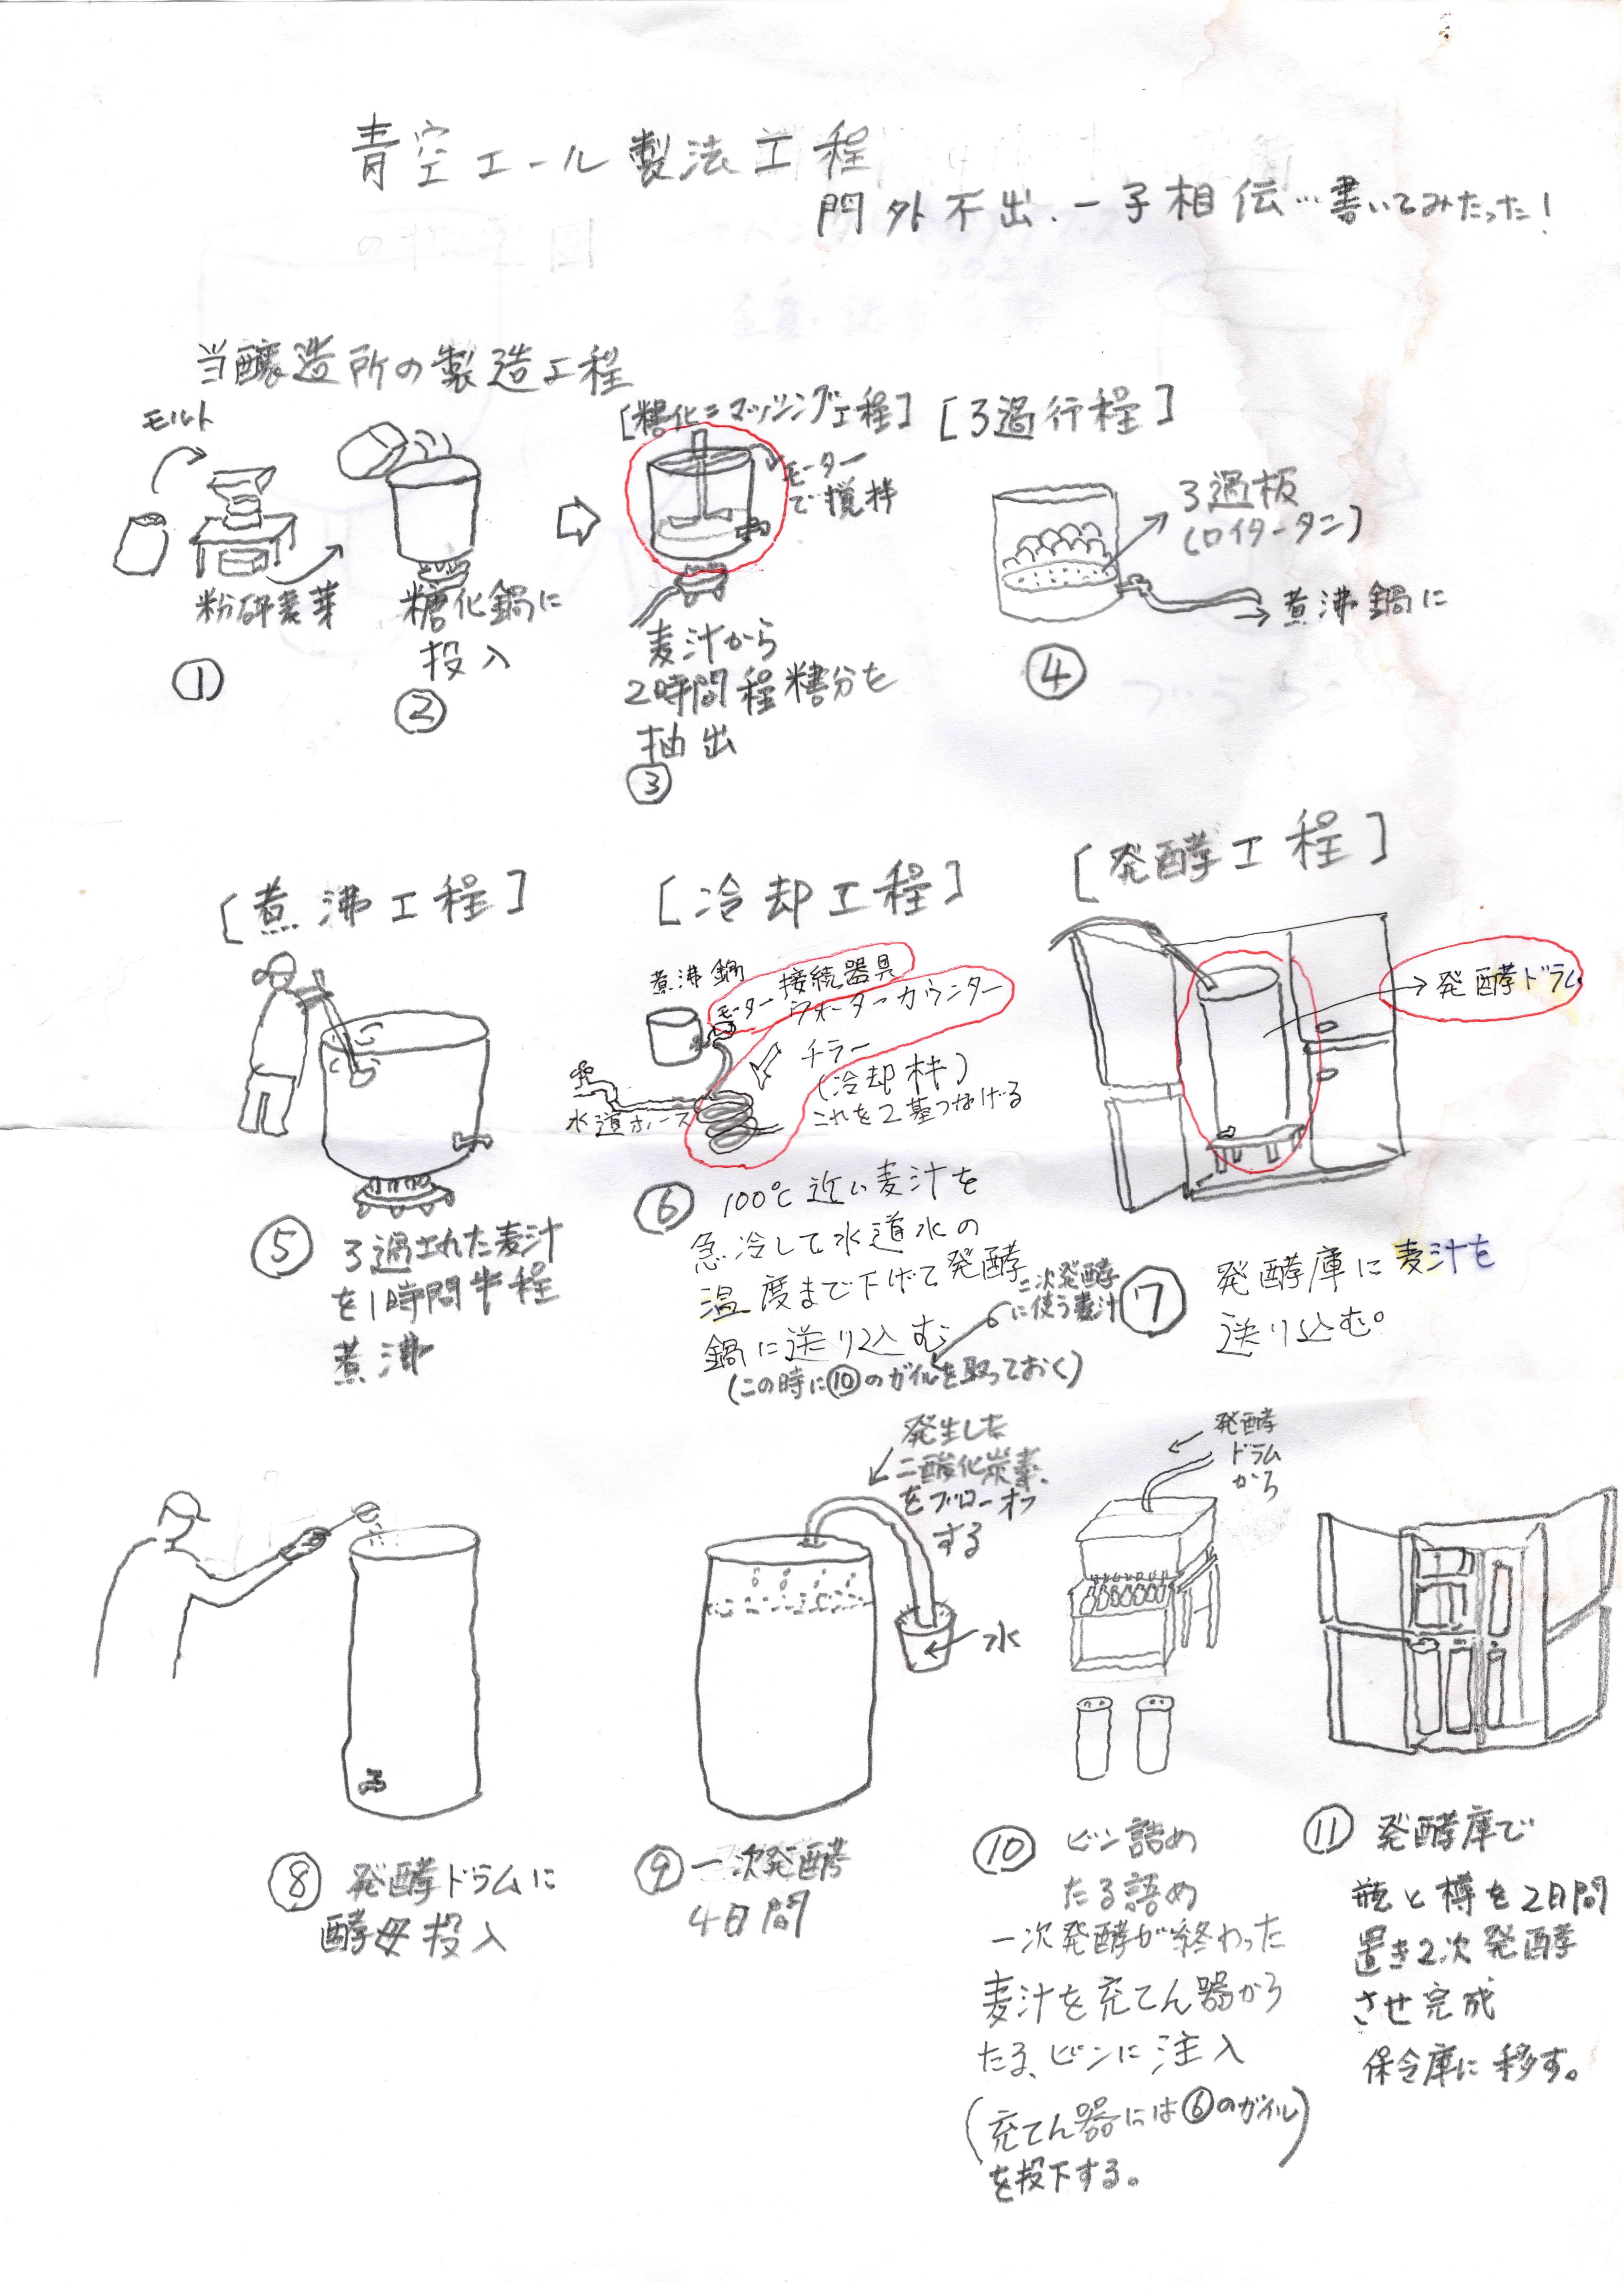 青空エール製法工程
門外不出.一子相伝…書いてみたった!
当醸造所の製造工程
モルト
粉砕
①
糖化鍋に
投入
②
[糖化=マッシング工程]
モーター
で撹拌
麦汁から
2時間程糖分を
抽出
③
[3過行程]
3過板
(ロイタータン)
煮沸鍋に
④
[煮沸工程]
⑤ 3過された麦汁
を1時間半程
煮沸
[冷却工程]
煮沸鍋
モーター接続器具
ウォーターカウンター
チラー
(冷却枠)
これを2基つなげる
水道ホース
⑥ 100℃近い麦汁を
急冷して水道水の
温度まで下げて発酵
鍋に送り込む
(この時に⑩のガイルを取っておく)
二次発酵
に使う麦汁
[発酵工程]
発酵ドラム
⑦ 発酵庫に麦汁を
送り込む。
⑧ 発酵ドラムに
酵母投入
発生した
二酸化炭素
をブローオフ
する
水
⑨ 一次発酵
4日間
発酵
ドラム
から
⑩ ビン詰め
たる詰め
一次発酵が終わった
麦汁を充てん器から
たる、ビンに注入
(充てん器には⑥のガイル)
を投下する。
⑪ 発酵庫で
瓶と樽を2日間
置き2次発酵
させ完成
保冷庫に移す。